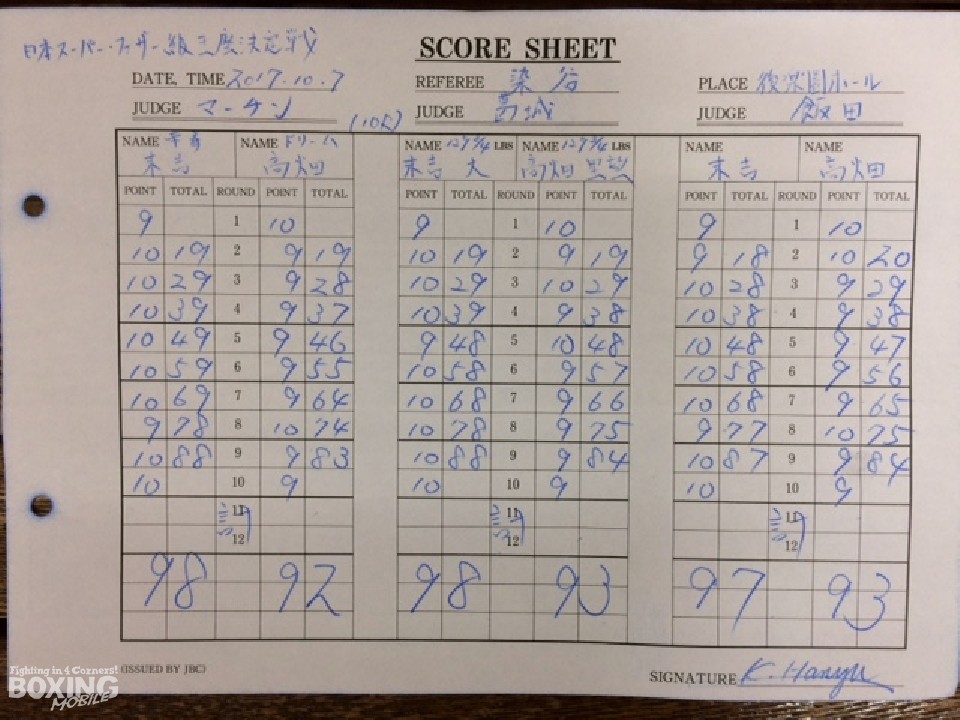 日本スーパー・フェザー級王座決定戦
SCORE SHEET
DATE, TIME 2017.10.7 REFEREE 染谷 PLACE 後楽園ホール
JUDGE マーチン (10R) JUDGE 葛城 JUDGE 飯田
NAME 帝拳 NAME ドリーム NAME 129 3/4 LBS NAME 129 3/4 LBS NAME NAME
末吉 高畑 末吉 大 高畑 末吉 高畑
POINT TOTAL ROUND POINT TOTAL POINT TOTAL ROUND POINT TOTAL POINT TOTAL ROUND POINT TOTAL
9 1 10 9 1 10 9 1 10
10 19 2 9 19 10 19 2 9 19 9 18 2 10 20
10 29 3 9 28 10 29 3 10 29 10 28 3 9 29
10 39 4 9 37 10 39 4 9 38 10 38 4 9 38
10 49 5 9 46 9 48 5 10 48 10 48 5 9 47
10 59 6 9 55 10 58 6 9 57 10 58 6 9 56
10 69 7 9 64 10 68 7 9 66 10 68 7 9 65
9 78 8 10 74 10 78 8 9 75 9 77 8 10 75
10 88 9 9 83 10 88 9 9 84 10 87 9 9 84
10 10 9 10 10 9 10 10 9
11 11 11
12 12 12
計 計 計
98 92 98 93 97 93
(ISSUED BY JBC)
SIGNATURE K. Hanyu
Fighting in 4 Corners!
BOXING
MOBILE